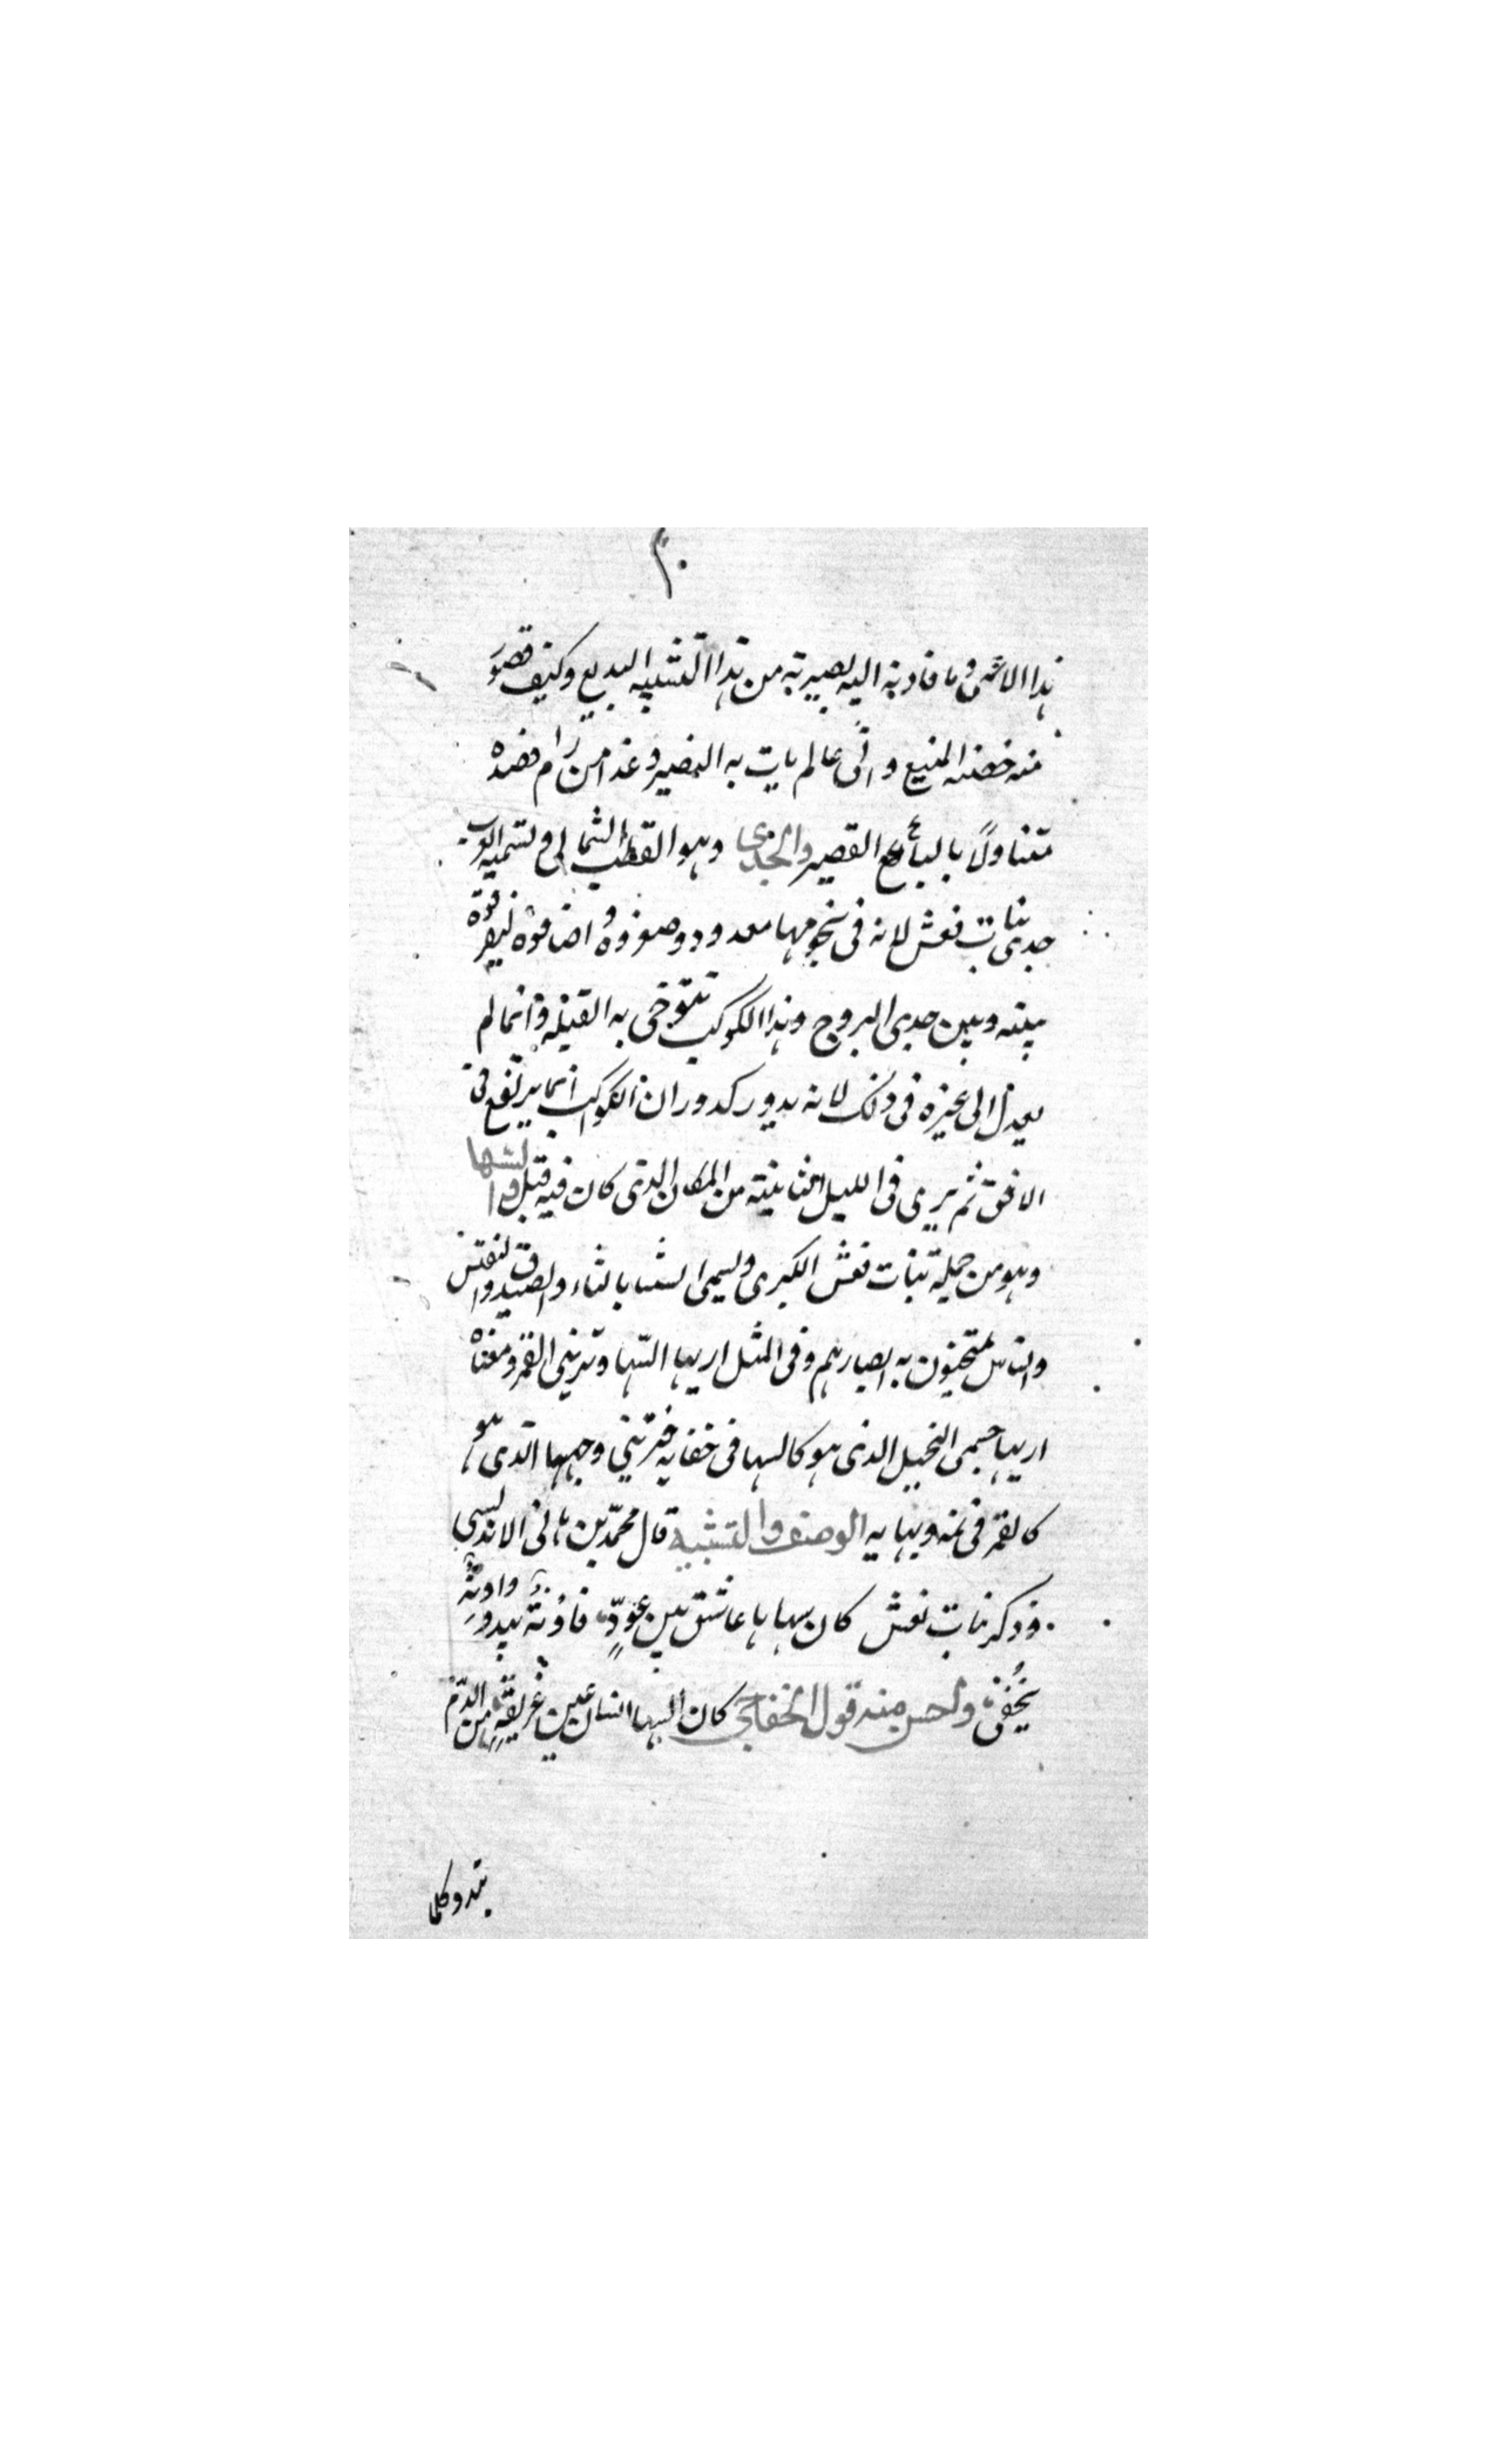 ٢٠
هذا الاعمى وما قادته اليه بصيرته من هذا التشبيه البديع وكيف تصور
منه حصنه المنيع وانى عالم يات به البصير وغدا من رام قصده
متناولًا بالباع القصير والجدى وهو القطب الشمالى وتسميه العرب
جدى بنات نعش لانه فى نجومها معدود وصغروه واضافوه ليفرقوه
بينه وبين جدى البروج وهذا الكوكب تتوخى به القبلة وانما لم
يعدل الى غيره فى ذلك لانه يدور كدوران الكواكب انما يرتفع فى
الافق ثم يرى فى الليل الثانية من المكان الذى كان فيه قبل والسها
وهو من جملة بنات نعش الكبرى ويسمى الستا بالثاء والصيدق والنفتش
والناس يمتحنون به ابصارهم وفى المثل اريها السّها وترينى القمر ومعناه
اريها جسمى النحيل الذى هو كالسها فى خفايه فترينى وجهها الذى هو
كالقمر فى تمه وبهايه الوصف والتشبيه قال محمّد بن هانى الاندلسى
وذكر بنات نعش كان سهاها عاشق بين عوّدٍ فآونةً يبدو وآونةً
يُخفى واحسن منه قول الخفاجى كان السها انسان عين غريقةٍ من الدمع
يبدو كلما